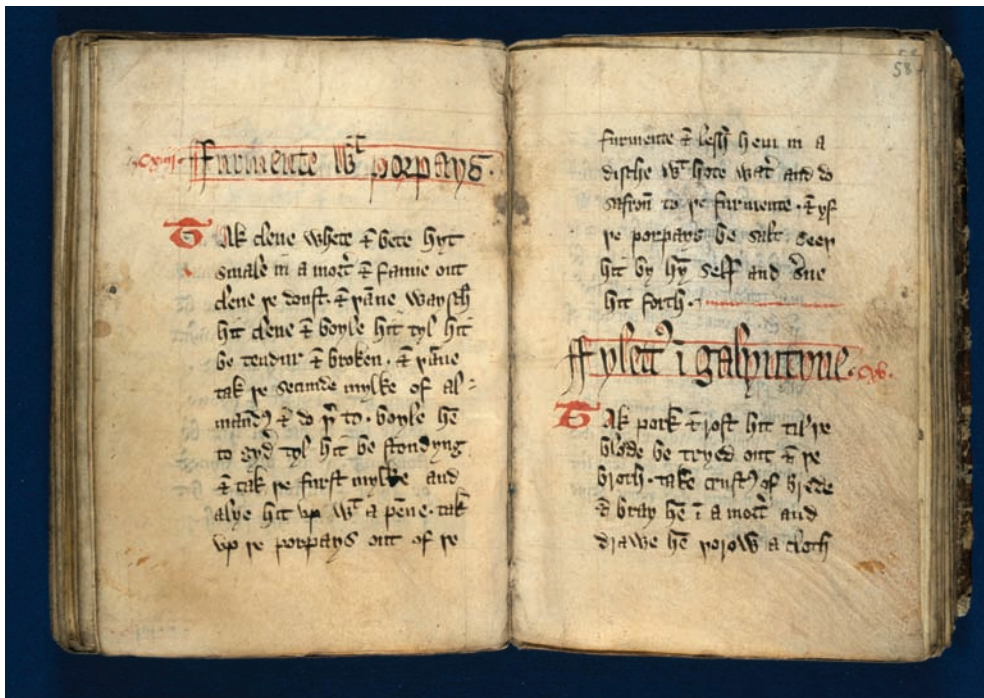 .cxiiij.
Furmente wt porpays.
Tak clene whete & bete hyt
smale in a mort' & fanne out
clene þe doust. & þāne waysch
hit clene & boyle hit tyl hit
be tendur & broken. & þāne
tak þe secunde mylke of al-
mand' & do þ'to. boyle hē
to gyd' tyl hit be stondyng
& tak þe furst mylke and
alye hit vp wt a pēne. tak
vp þe porpays out of þe
58
furmente & lesh hem in a
dische wt hote wat' and do
safron to þe furmente. & yf
þe porpays be salt. seeþ
hit by hȳ self and s'ue
hit forth.
Fylett' ī galyntyne. cxv.
Tak pork & rost hit til þe
blode be tryed out & þe
broth. take crust' of brede
& bray hē ī a mort' and
drawe hē þorow a cloth